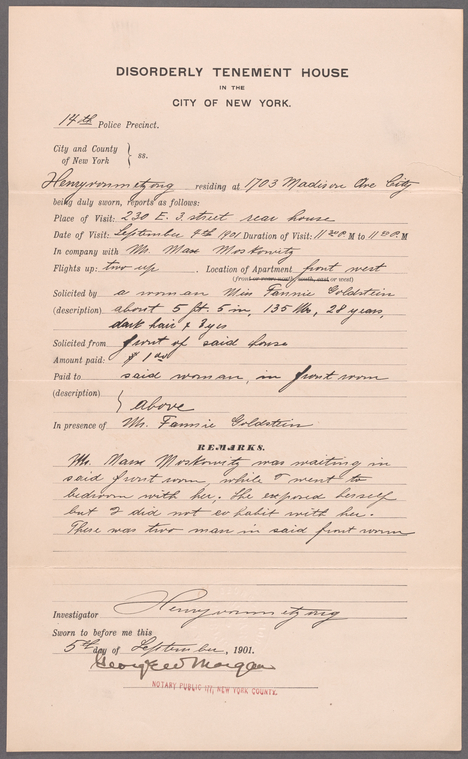 DISORDERLY TENEMENT HOUSE
IN THE
CITY OF NEW YORK.
14th Police Precinct.
City and County
of New York } ss.
Henry vonmetzong residing at 1703 Madison Ave City
being duly sworn, reports as follows:
Place of Visit: 230 E. 3 street rear house
Date of Visit: September 4th 1901 Duration of Visit: 11 P M to 11 P M
In company with Mr. Max Moskowitz
Flights up: two up. Location of Apartment front west
(front or rear, east, south, east or west)
Solicited by a woman Miss Fannie Goldstein
(description) about 5 ft. 5 in, 135 lbs, 28 years,
dark hair & Eyes
Solicited from front of said house
Amount paid: $ 1 00
Paid to said woman, in front room
(description)
} above
In presence of Mr. Fannie Goldstein
REMARKS.
Mr. Max Moskowitz was waiting in
said front room, while I went to
bedroom with her. She exposed herself
but I did not cohabit with her.
There was two man in said front room
Investigator Henry vonmetzong
Sworn to before me this
5th day of September, 1901.
George W Morgan
NOTARY PUBLIC NEW YORK COUNTY.